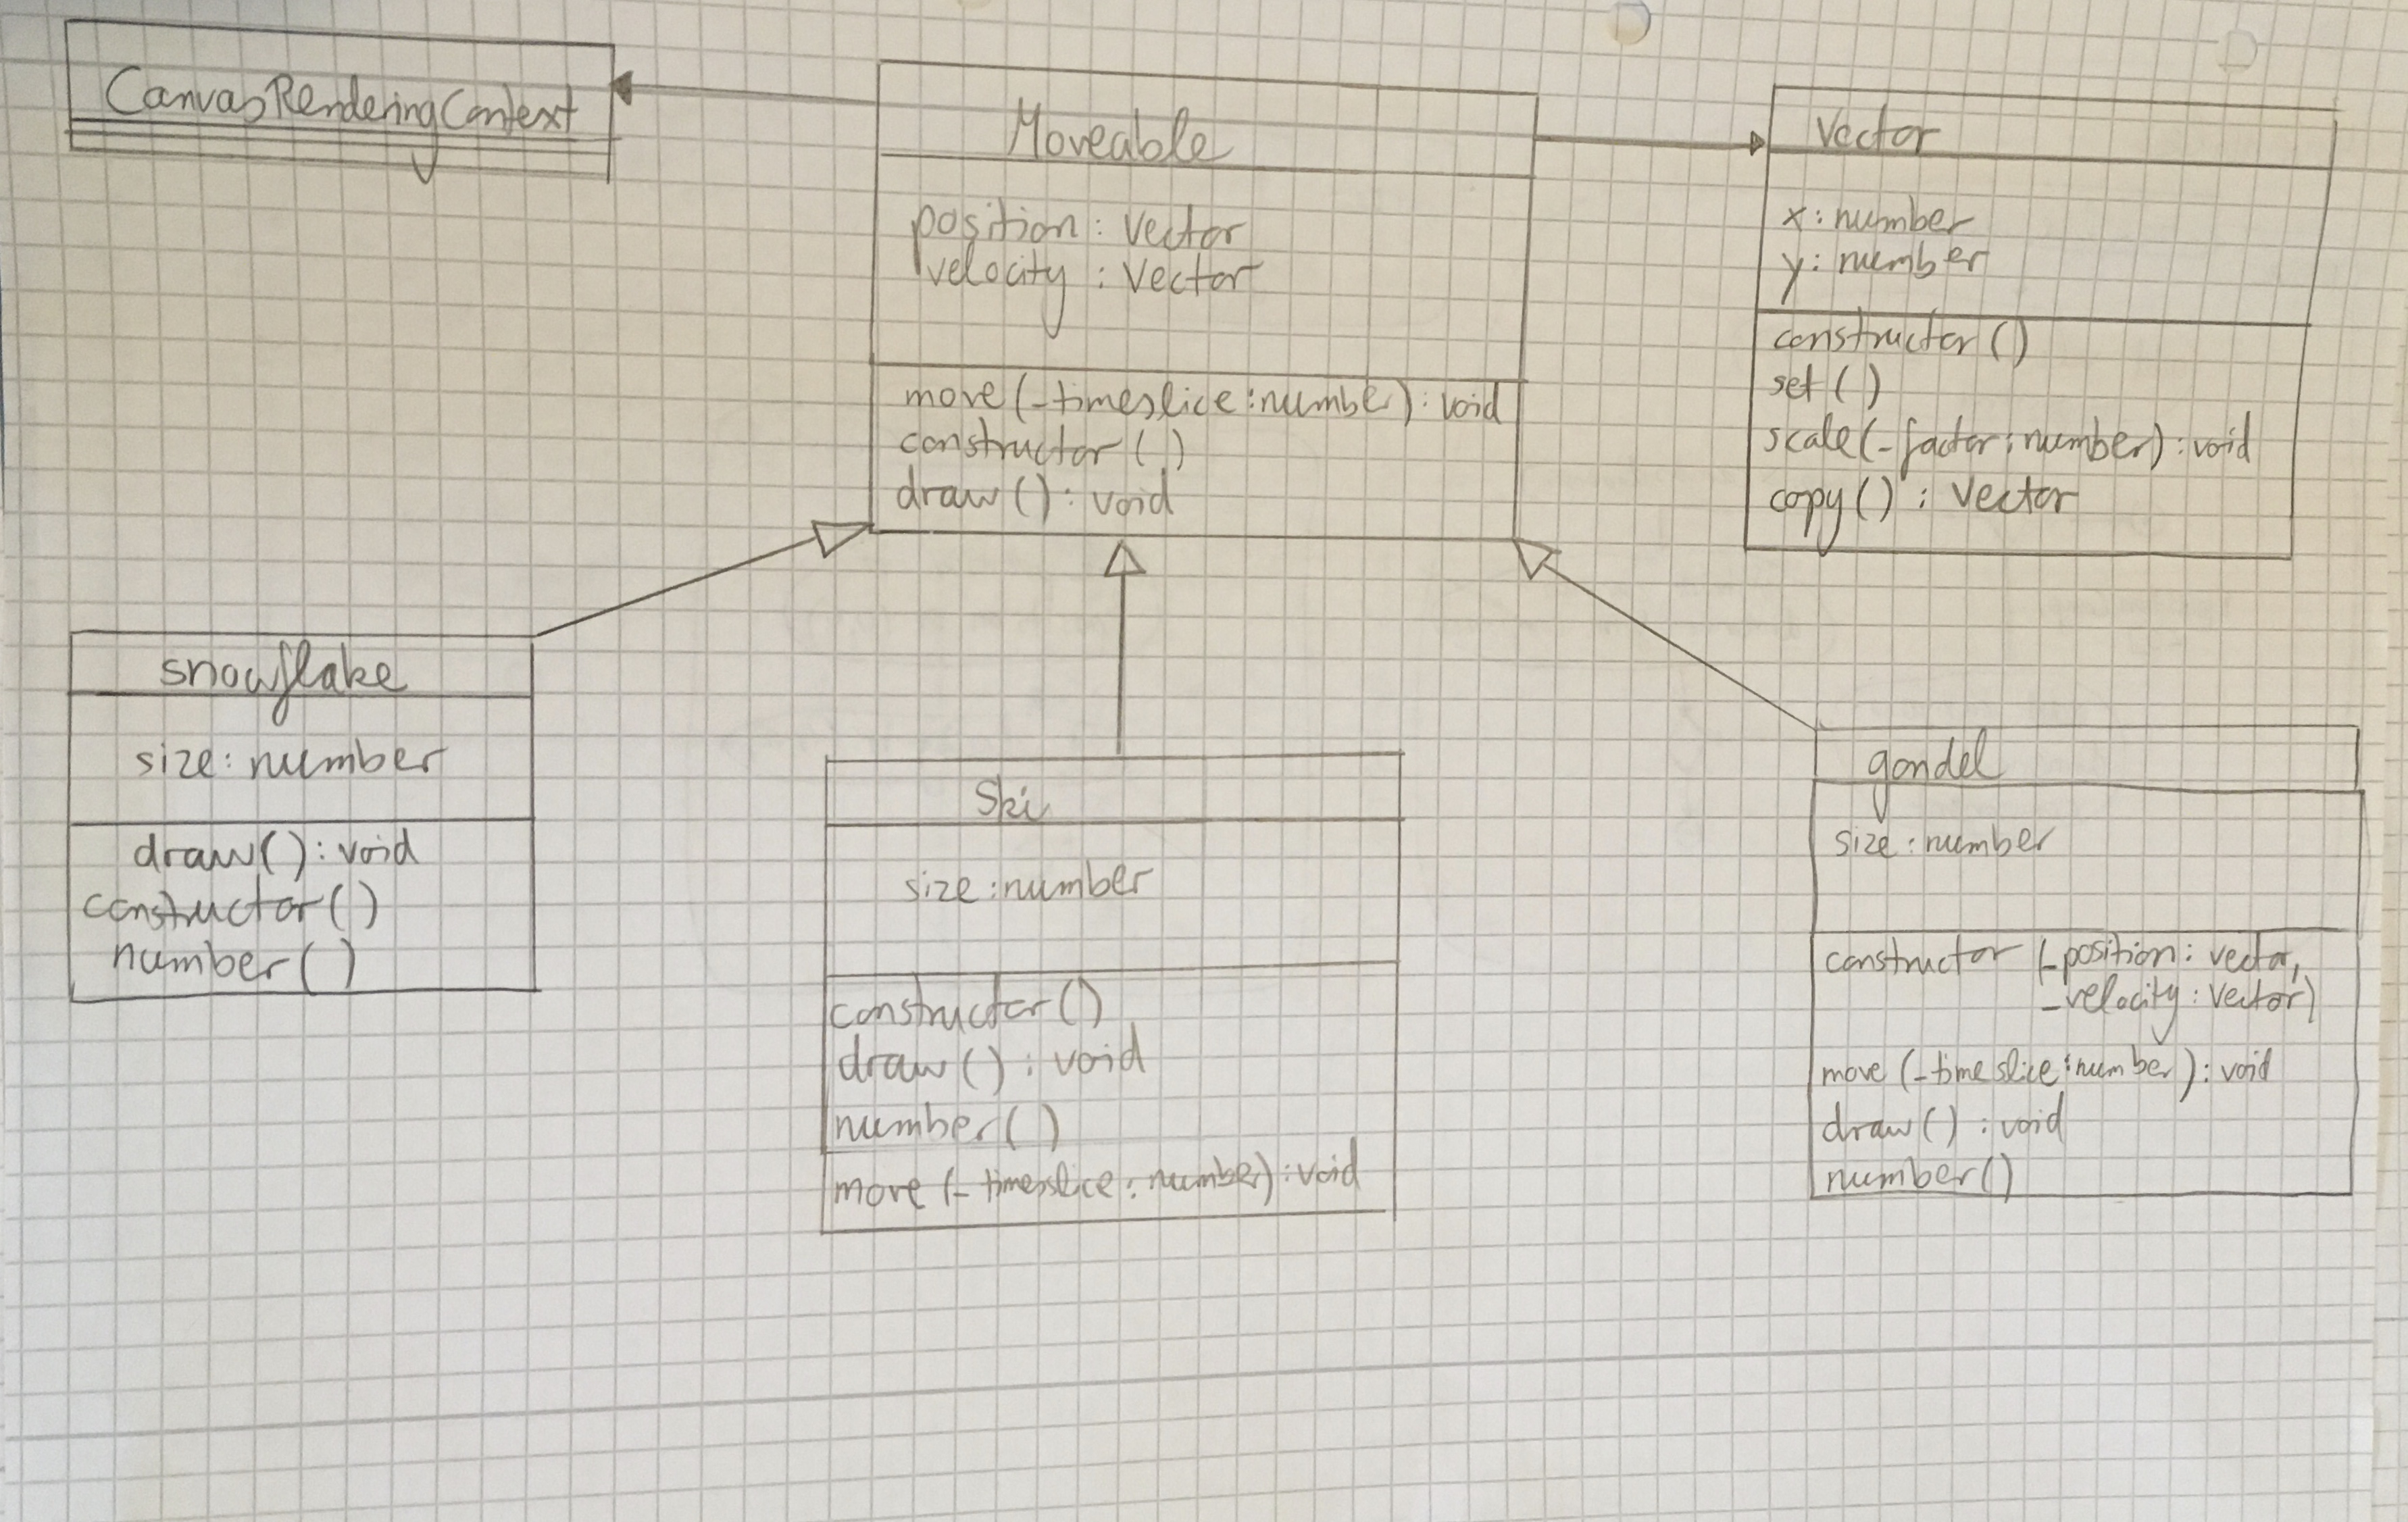 CanvasRenderingContext
Moveable
position: Vector
velocity: Vector
move(_timeslice:number): void
constructor()
draw(): void
Vector
x: number
y: number
constructor()
set()
scale(_factor:number): void
copy(): Vector
snowflake
size: number
draw(): void
constructor()
number()
Ski
size:number
constructor()
draw(): void
number()
move(_timeslice: number): void
gondel
size: number
constructor (_position: vector,
_velocity: Vector)
move(_timeslice:number): void
draw(): void
number()